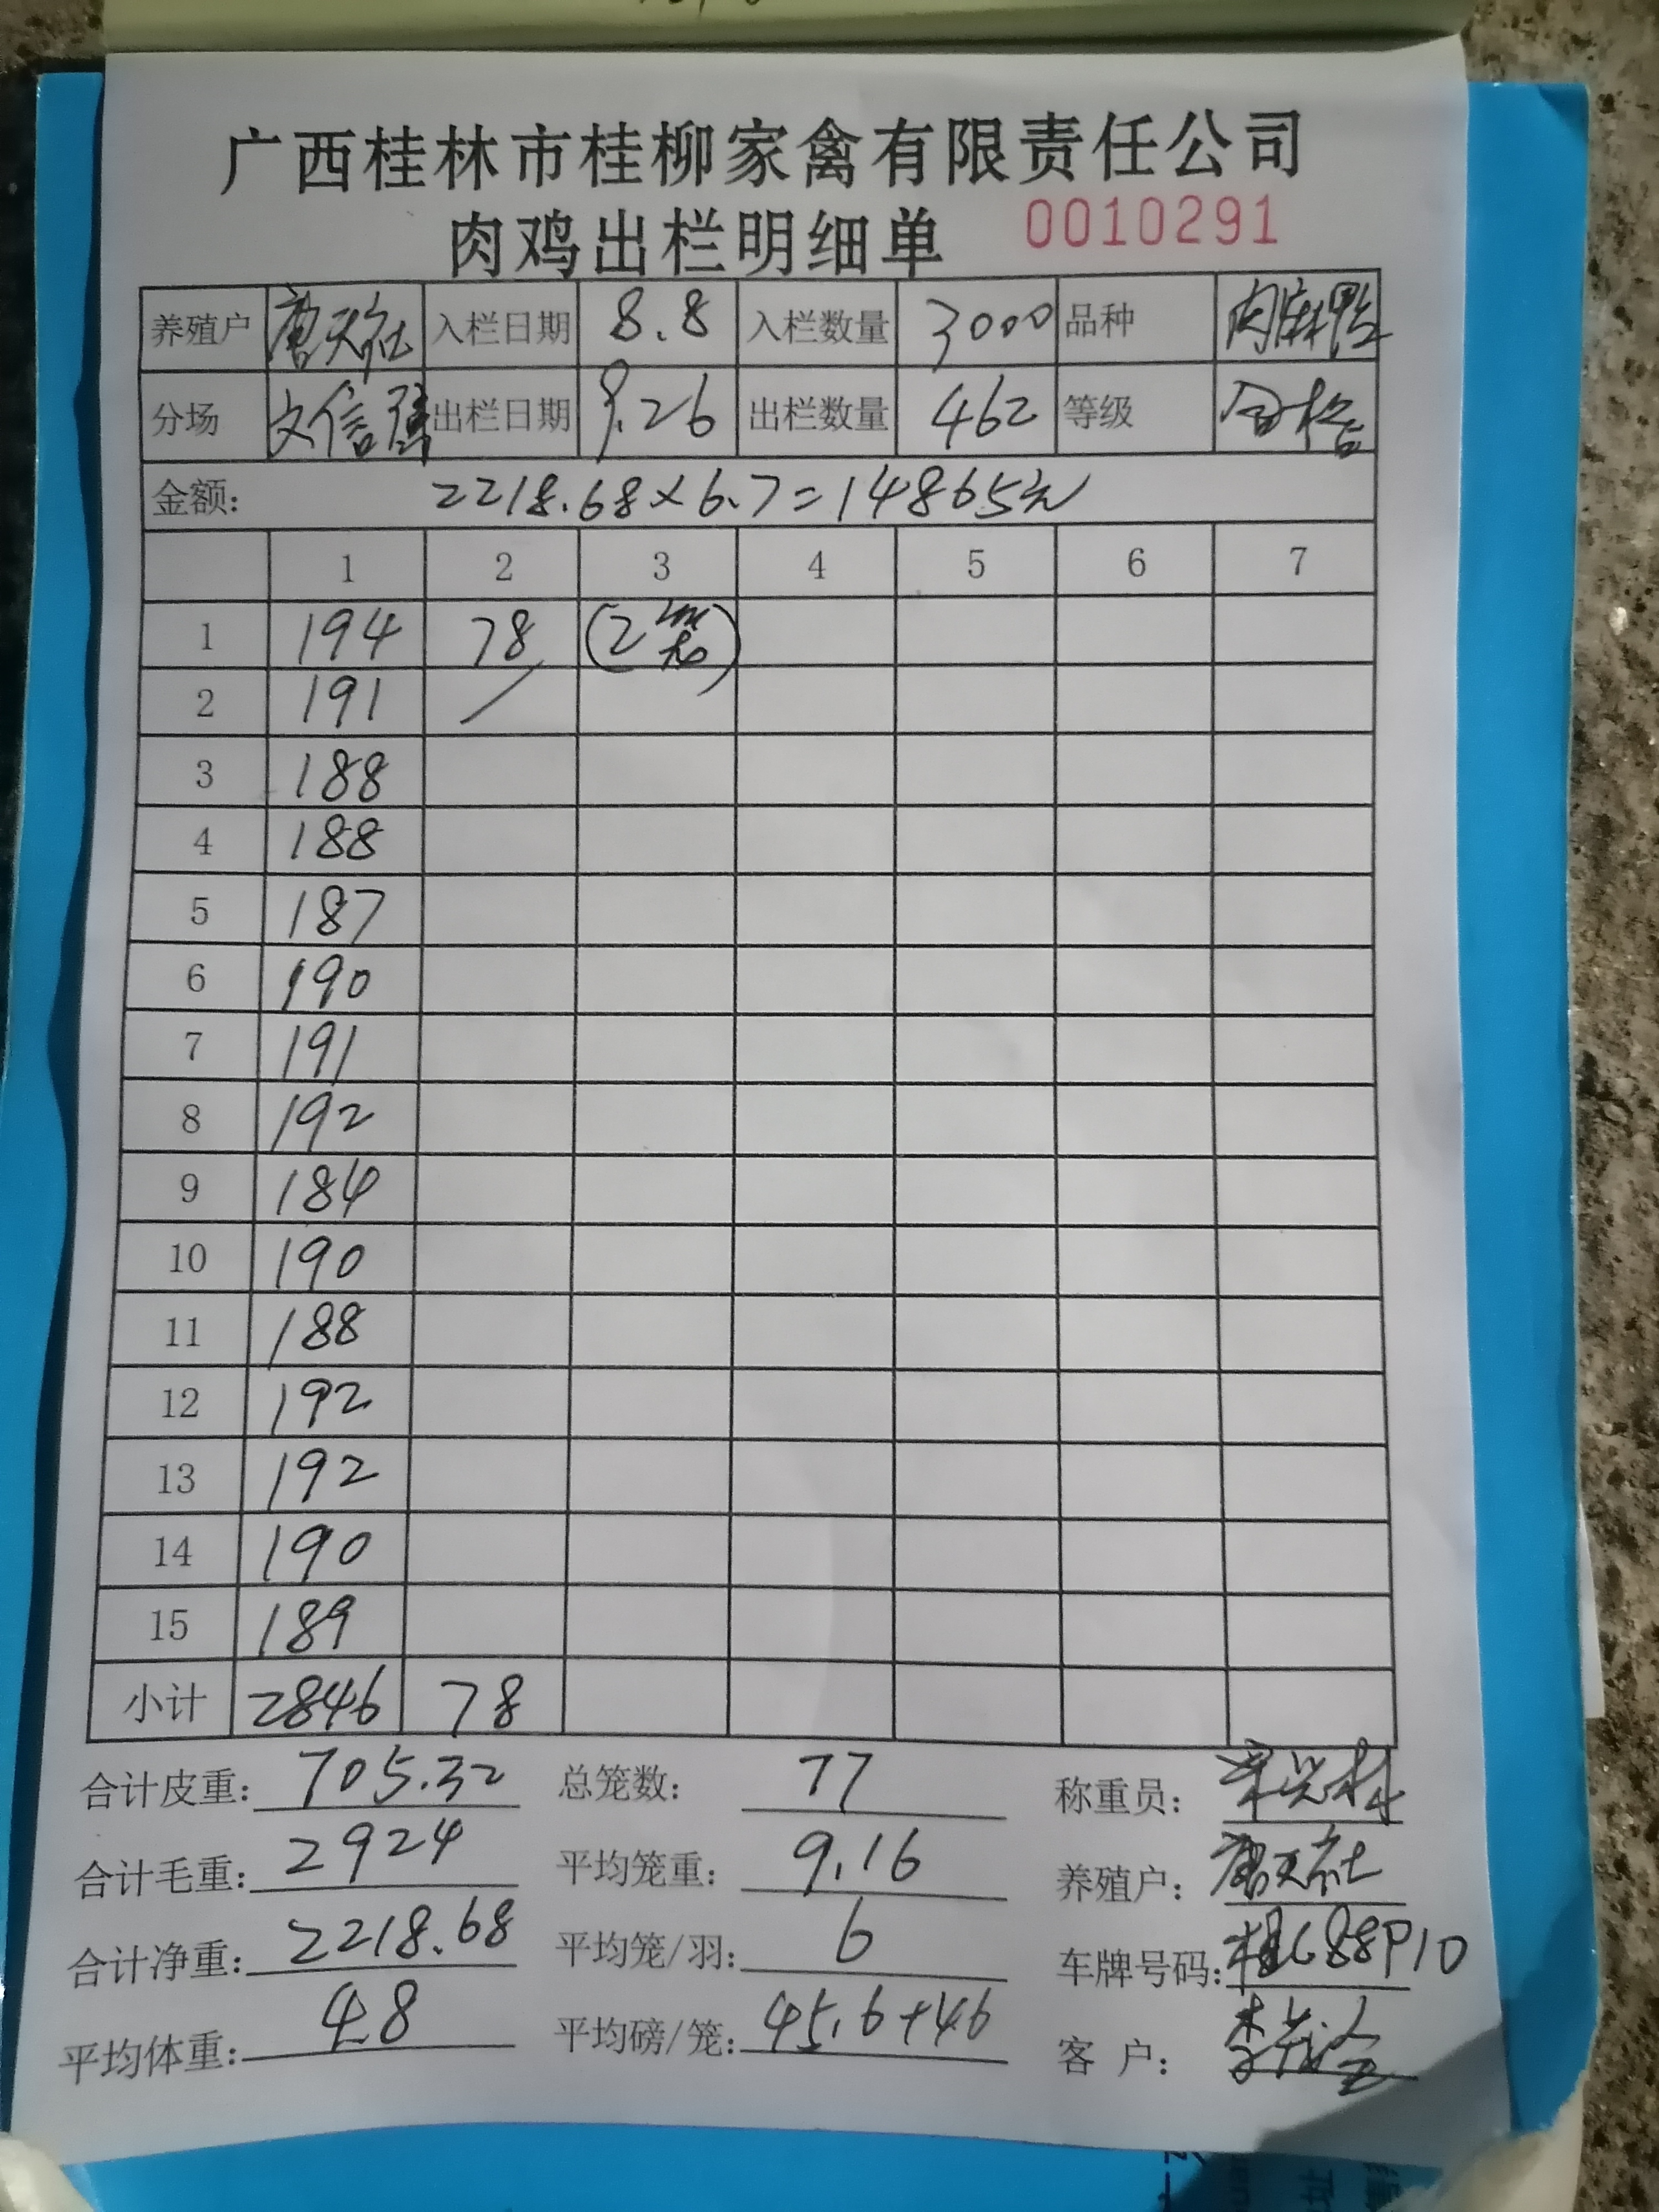 广西桂林市桂柳家禽有限责任公司
肉鸡出栏明细单 0010291
养殖户 唐天社 入栏日期 8.8 入栏数量 3000 品种 肉麻鸭
分场 文信 出栏日期 9.26 出栏数量 462 等级 合格
金额: 2218.68×6.7=14865元
1 2 3 4 5 6 7
1 194 78 (2
2 191
3 188
4 188
5 187
6 190
7 191
8 192
9 184
10 190
11 188
12 192
13 192
14 190
15 189
小计 2846 78
合计皮重: 705.32 总笼数: 77 称重员:
合计毛重: 2924 平均笼重: 9.16 养殖户: 唐天社
合计净重: 2218.68 平均笼/羽: 6 车牌号码: 桂C88P10
平均体重: 4.8 平均磅/笼: 45.6+46 客 户: